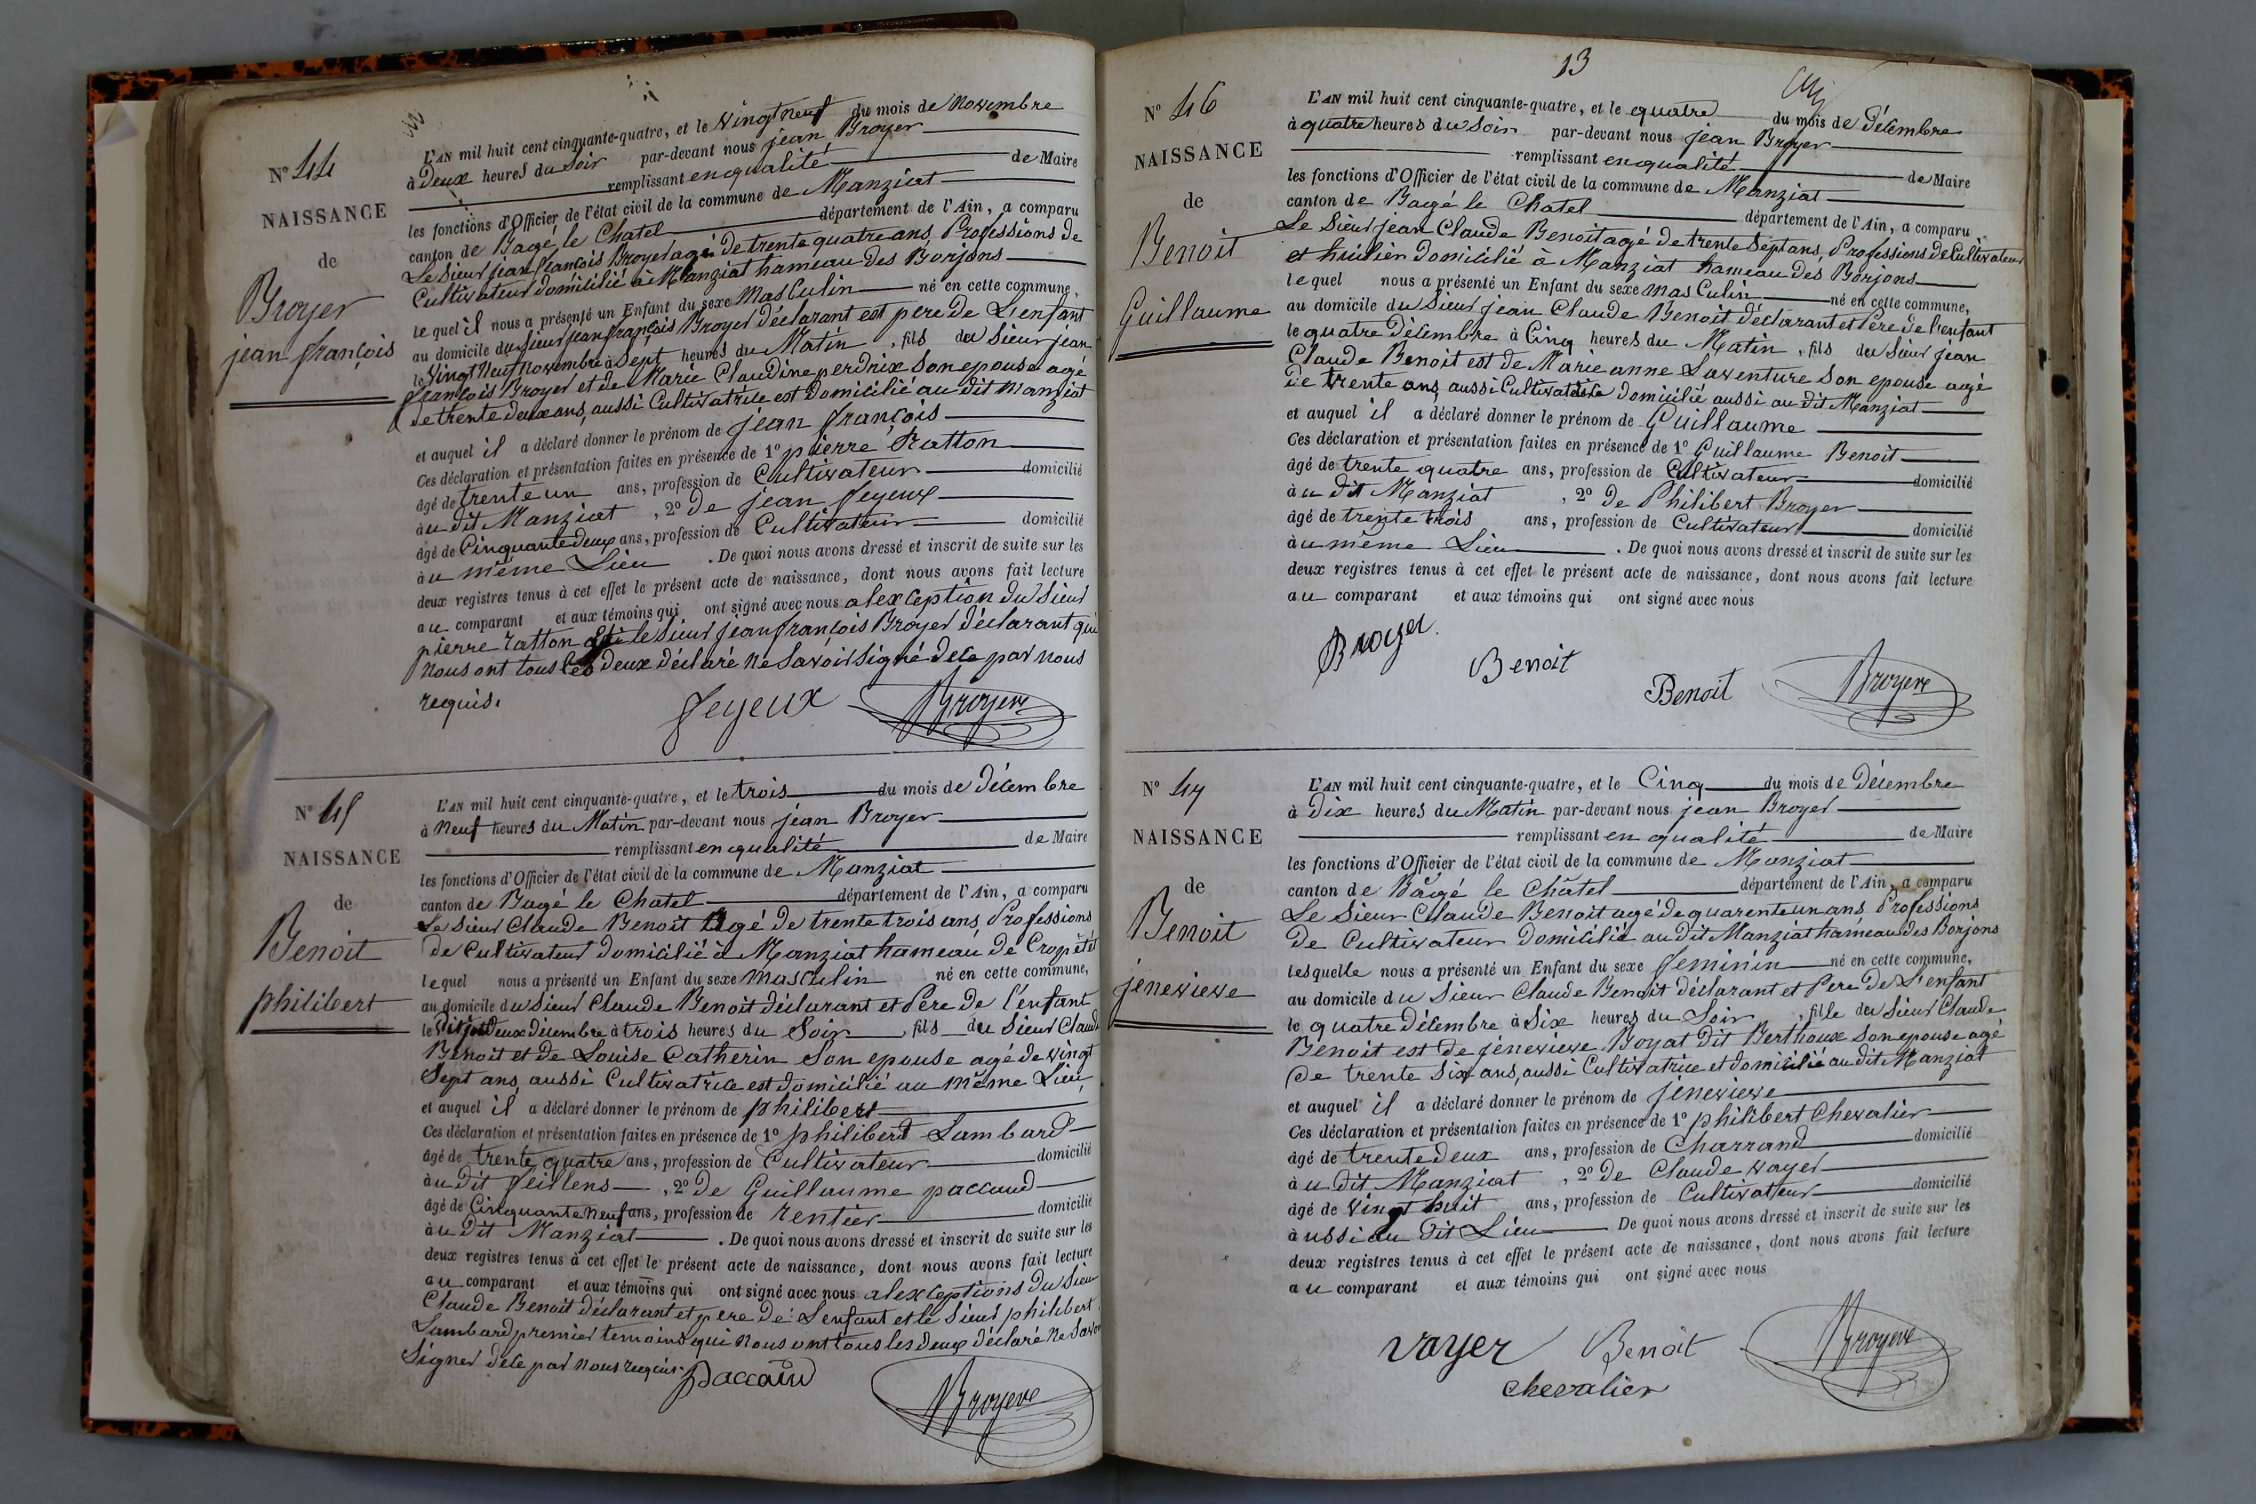 N° 44
NAISSANCE
de
Broyer
jean françois
L'AN mil huit cent cinquante-quatre, et le Vingt neuf du mois de Novembre
à Deux heures du Soir par-devant nous jean Broyer
remplissant en qualité de Maire
les fonctions d'Officier de l'état civil de la commune de Manziat
canton de Bagé le Chatel département de l'Ain, a comparu
Le Sieur jean françois Broyer agé De trente quatre ans, Professions de
Cultivateur domicilié à Manziat hameau des Borjons
le quel il nous a présenté un Enfant du sexe Masculin né en cette commune,
au domicile du Sieur jean françois Broyer déclarant est pere de L'enfant
le Vingt Neuf Novembre à Sept heures du Matin, fils du Sieur jean
françois Broyer et de Marie Claudine perdrix son epouse agé
de trente deux ans, aussi Cultivatrice est Domicilié au dit Manziat
et auquel il a déclaré donner le prénom de jean françois
Ces déclaration et présentation faites en présence de 1° pierre Ratton
âgé de trente un ans, profession de Cultivateur domicilié
àu dit Manziat, 2° De jean feyeux
âgé de Cinquante deux ans, profession de Cultivateur domicilié
àu même Lieu. De quoi nous avons dressé et inscrit de suite sur les
deux registres tenus à cet effet le présent acte de naissance, dont nous avons fait lecture
au comparant et aux témoins qui ont signé avec nous alexception du Sieur
pierre ratton le sieur jean françois Broyer déclarant qui
nous ont tous les deux déclaré ne Savoir Signé de ce par nous
requis.
feyeux Broyer
N° 45
NAISSANCE
de
Benoit
philibert
L'AN mil huit cent cinquante-quatre, et le trois du mois de Décembre
à Neuf heures du Matin par-devant nous jean Broyer
remplissant en qualité de Maire
les fonctions d'Officier de l'état civil de la commune de Manziat
canton de Bagé le Chatel département de l'Ain, a comparu
Le Sieur Claude Benoit agé De trente trois ans, Professions
de Cultivateur domicilié à Manziat hameau de Cropetet
le quel nous a présenté un Enfant du sexe Masculin né en cette commune,
au domicile du Sieur Claude Benoit déclarant et Pere de l'enfant
le Deux décembre à trois heures du Soir fils du Sieur Claude
Benoit et de Louise Catherin Son epouse agé de vingt
Sept ans, aussi Cultivatrice est domicilié au même Lieu
et auquel il a déclaré donner le prénom de philibert
Ces déclaration et présentation faites en présence de 1° philibert Lambard
âgé de trente quatre ans, profession de Cultivateur domicilié
àu dit feillens, 2° De Guillaume paccaud
âgé de Cinquante neuf ans, profession de rentier domicilié
àu Dit Manziat. De quoi nous avons dressé et inscrit de suite sur les
deux registres tenus à cet effet le présent acte de naissance, dont nous avons fait lecture
au comparant et aux témoins qui ont signé avec nous alexceptions du Sieur
Claude Benoit déclarant et pere De L'enfant et le Sieur philibert
Lambard premier temoins qui nous ont tous les deux déclaré ne Savoir
Signer de ce par nous requis.
paccaud Broyer
13
N° 46
NAISSANCE
de
Benoit
Guillaume
L'AN mil huit cent cinquante-quatre, et le quatre du mois de Décembre
à quatre heures du Soir par-devant nous jean Broyer
remplissant en qualité de Maire
les fonctions d'Officier de l'état civil de la commune de Manziat
canton de Bagé le Chatel département de l'Ain, a comparu
Le Sieur jean Claude Benoit agé de trente Sept ans, Professions de Cultivateur
et huilier Domicilié à Manziat hameau des Borjons
le quel nous a présenté un Enfant du sexe Masculin né en cette commune,
au domicile du Sieur jean Claude Benoit déclarant et Pere de l'enfant
le quatre Décembre à Cinq heures du Matin, fils du Sieur jean
Claude Benoit est de Marie anne Laventure Son epouse agé
de trente ans, aussi Cultivatrice Domicilié aussi au dit Manziat
et auquel il a déclaré donner le prénom de Guillaume
Ces déclaration et présentation faites en présence de 1° Guillaume Benoit
âgé de trente quatre ans, profession de Cultivateur domicilié
àu dit Manziat, 2° De Philibert Broyer
âgé de trente trois ans, profession de Cultivateur domicilié
àu même Lieu. De quoi nous avons dressé et inscrit de suite sur les
deux registres tenus à cet effet le présent acte de naissance, dont nous avons fait lecture
au comparant et aux témoins qui ont signé avec nous
Broyer Benoit Benoit Broyer
N° 47
NAISSANCE
de
Benoit
jenevieve
L'AN mil huit cent cinquante-quatre, et le Cinq du mois de Décembre
à Dix heures du Matin par-devant nous jean Broyer
remplissant en qualité de Maire
les fonctions d'Officier de l'état civil de la commune de Manziat
canton de Bâgé le Châtel département de l'Ain, a comparu
Le Sieur Claude Benoit agé de quarente un ans, Professions
De Cultivateur Domicilié au dit Manziat hameau des Borjons
lesquelle nous a présenté un Enfant du sexe féminin né en cette commune,
au domicile du Sieur Claude Benoit déclarant et Pere De L'enfant
le quatre Décembre à Six heures du Soir, fille du Sieur Claude
Benoit est De jenevieve Boyat Dit Berthoux son epouse agé
De trente Six ans, aussi Cultivatrice et domicilié au dit Manziat
et auquel il a déclaré donner le prénom de jenevieve
Ces déclaration et présentation faites en présence de 1° philibert Chevalier
âgé de trente deux ans, profession de Charrand domicilié
àu dit Manziat, 2° De Claude Vayer
âgé de Vingt huit ans, profession de Cultivateur domicilié
àussi au Dit Lieu De quoi nous avons dressé et inscrit de suite sur les
deux registres tenus à cet effet le présent acte de naissance, dont nous avons fait lecture
au comparant et aux témoins qui ont signé avec nous
vayer Benoit Broyer
chevalier